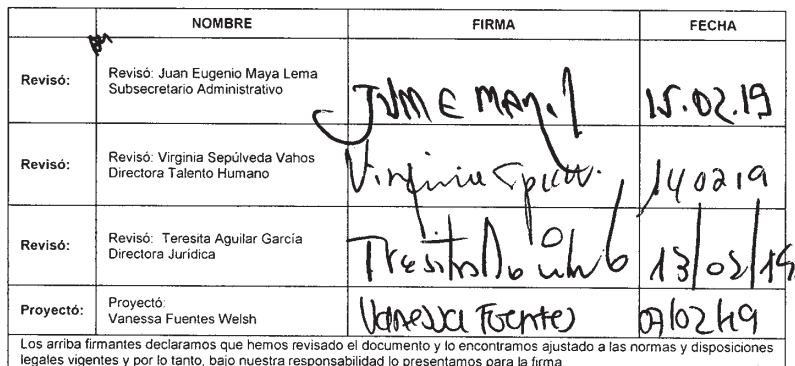 NOMBRE FIRMA FECHA
Revisó: Revisó: Juan Eugenio Maya Lema
Subsecretario Administrativo 15.02.19
Revisó: Revisó: Virginia Sepúlveda Vahos
Directora Talento Humano Virginia 140219
Revisó: Revisó: Teresita Aguilar García
Directora Jurídica 13/02/19
Proyectó: Proyectó:
Vanessa Fuentes Welsh Vanessa Fuentes
Los arriba firmantes declaramos que hemos revisado el documento y lo encontramos ajustado a las normas y disposiciones
legales vigentes y por lo tanto, bajo nuestra responsabilidad lo presentamos para la firma.